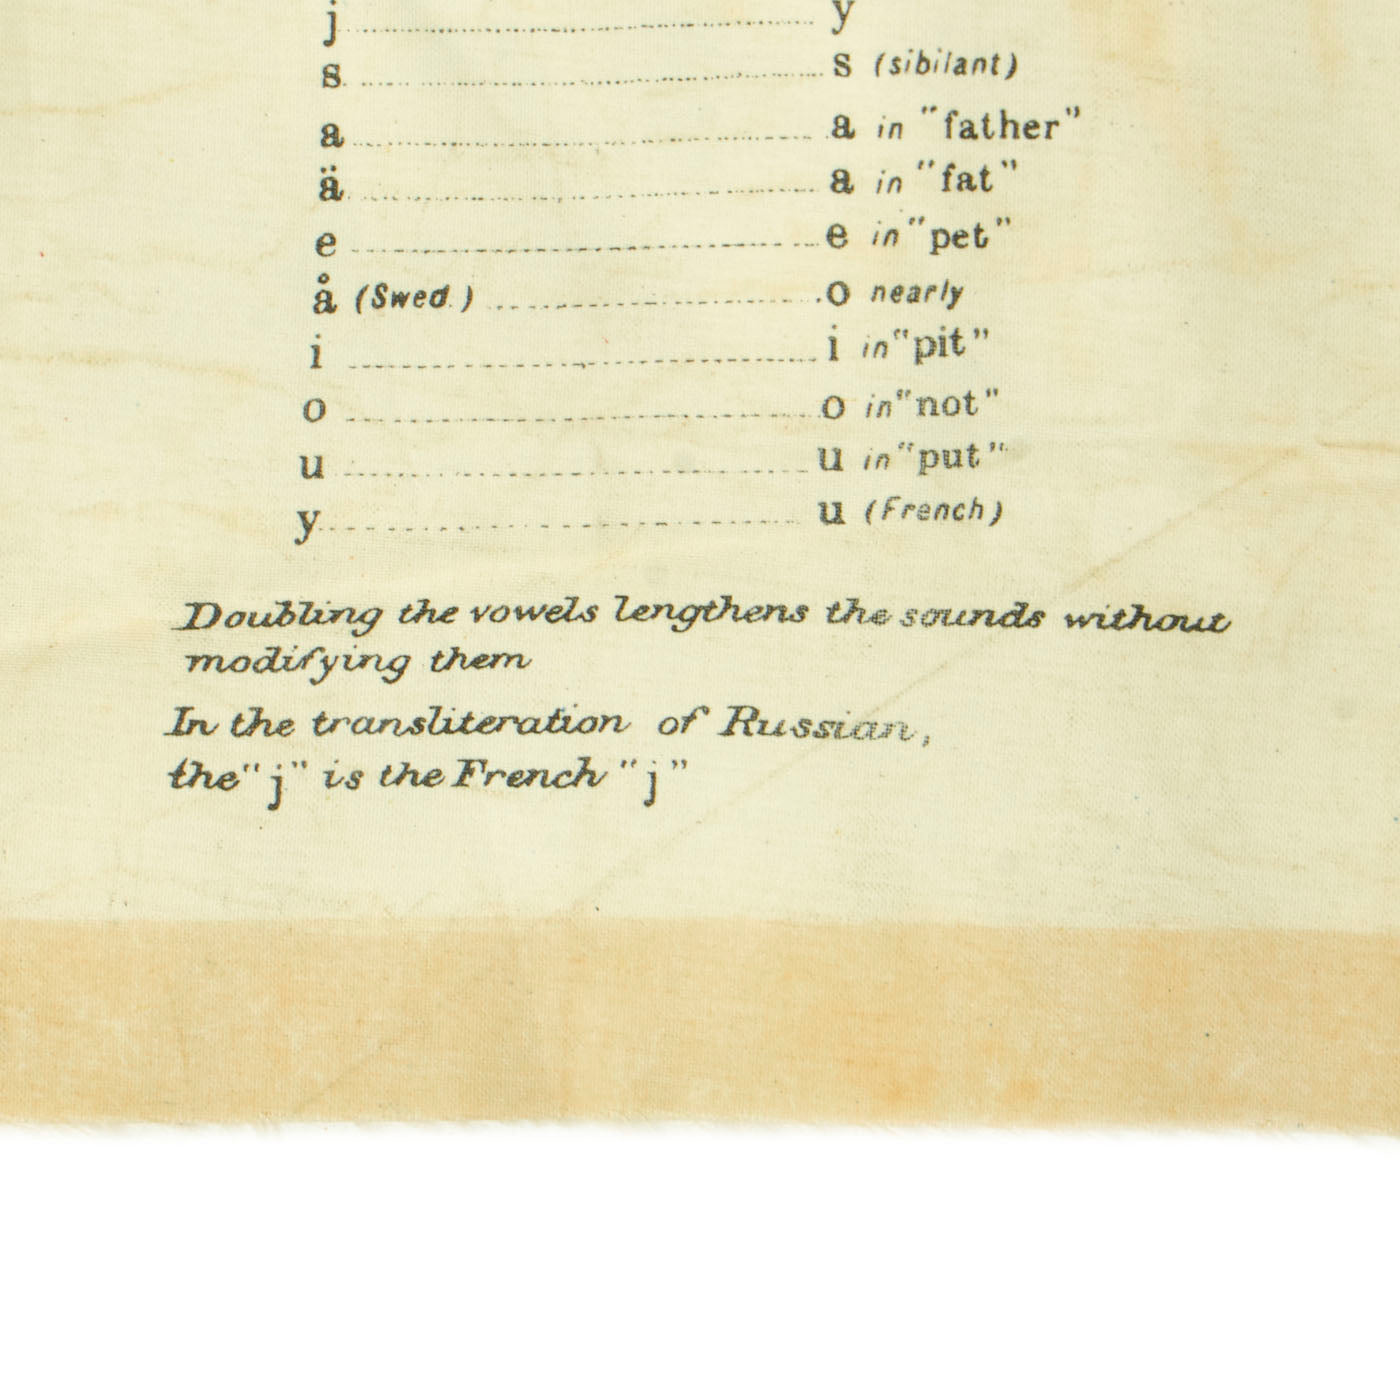 j ........ y
s ........ s (sibilant)
a ........ a in "father"
ä ........ a in "fat"
e ........ e in "pet"
å (Swed.) ........ o nearly
i ........ i in "pit"
o ........ o in "not"
u ........ u in "put"
y ........ u (French)
Doubling the vowels lengthens the sounds without
modifying them
In the transliteration of Russian,
the "j" is the French "j"